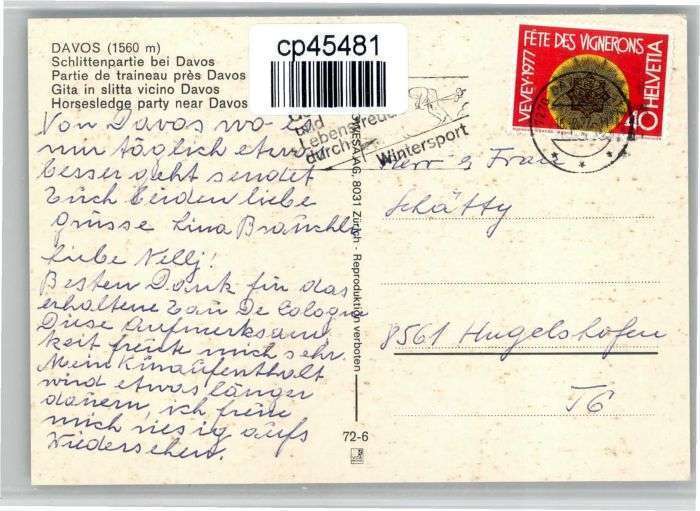 DAVOS (1560 m)
Schlittenpartie bei Davos
Partie de traineau près Davos
Gita in slitta vicino Davos
Horsesledge party near Davos
cp45481
Von Davos wo es
mir täglich etwas
besser geht sendet
Euch beiden liebe
Grüsse Lina
Liebe Nelly!
Besten Dank für das
erhaltene Eau De Cologne
Diese Aufmerksam
keit freute mich sehr.
Mein Kuraufenthalt
wird etwas länger
dauern, ich freue
mich riesig aufs
Wiedersehen.
und
Lebensfreude
durch
Wintersport
AG, 8031 Zürich - Reproduktion verboten
72-6
FÊTE DES VIGNERONS
VEVEY-1977
HELVETIA
40
Herr & Frau
Schätty
8561 Hugelshofen
TG